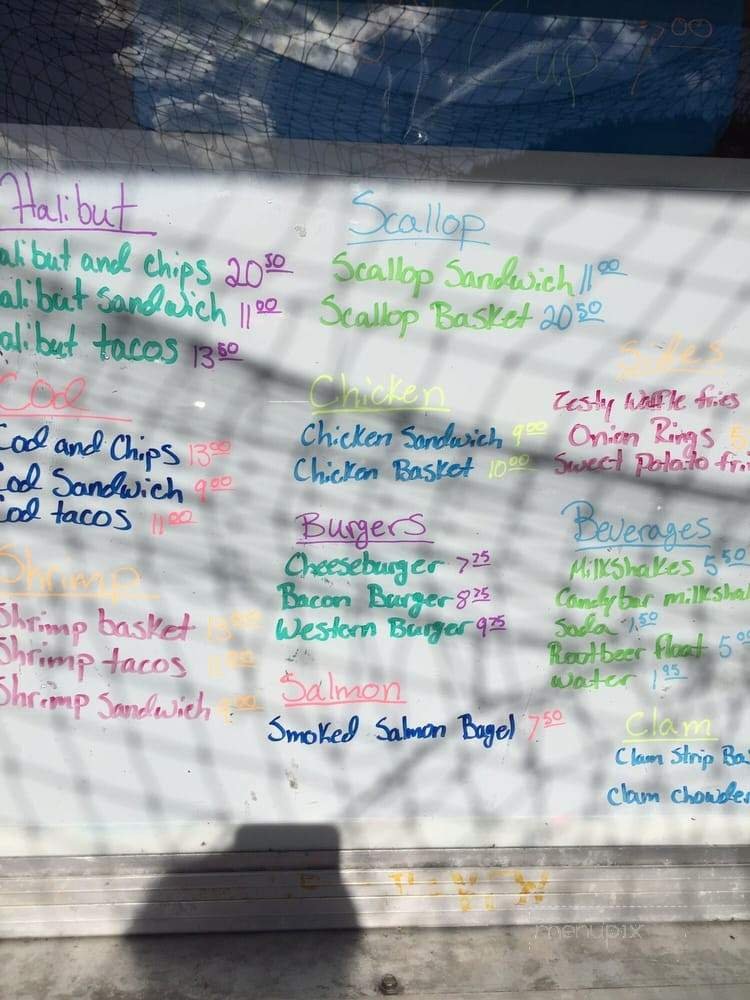 Cup 7.00
Halibut
alibut and chips 20.50
alibut sandwich 11.00
alibut tacos 13.50
Cod
Cod and Chips 13.00
Cod Sandwich 9.00
Cod tacos 11.00
Shrimp
Shrimp basket
Shrimp tacos
Shrimp Sandwich
Scallop
Scallop Sandwich 11.00
Scallop Basket 20.50
Chicken
Chicken Sandwich 9.00
Chicken Basket 10.00
Burgers
Cheeseburger 7.25
Bacon Burger 8.25
Western Burger 9.25
Salmon
Smoked Salmon Bagel 7.50
Sides
Zesty Waffle fries
Onion Rings
Sweet Potato fri
Beverages
Milkshakes 5.50
Candybar milksha
Soda 1.50
Rootbeer float 5.00
Water 1.95
Clam
Clam Strip Bas
Clam chowder
menupix